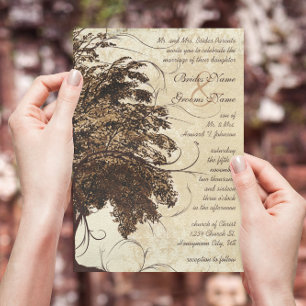 Mr. and Mrs. Brides Parents
invite you to celebrate the
marriage of their daughter
Brides Name
&
Grooms Name
son of
Mr. & Mrs.
Howard T. Johnson
saturday
the fifth of
november
two thousand
and sixteen
three o'clock
in the afternoon
church of Christ
1234 Church St.
Honeymoon City, UT
reception to follow